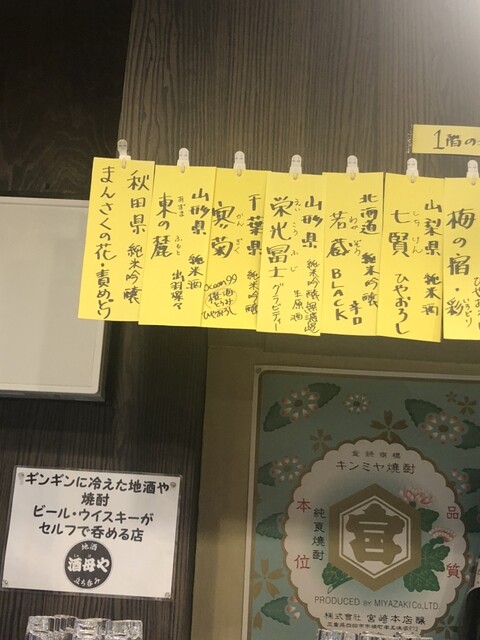 1階の
梅の宿・彩
山梨県 純米酒
七賢 ひやおろし
しちけん
北海道 純米吟醸
若蔵 BLACK 辛口
わかぞう
山形県 純米吟醸無濾過生原酒
栄光冨士 グラビティー
えいこうふじ
千葉県 純米吟醸
寒菊
かんぎく
Ocean99
ひやおろし
山形県 純米酒
東の麓 出羽燦々
あずまふもと
秋田県 純米吟醸
まんさくの花・責めどり
ギンギンに冷えた地酒や
焼酎
ビール・ウイスキーが
セルフで呑める店
地酒
酒母や
立ち呑み
登録商標
キンミヤ焼酎
本位
純良焼酎
宮
品質
PRODUCED BY MIYAZAKI Co.,LTD
株式会社 宮崎本店醸